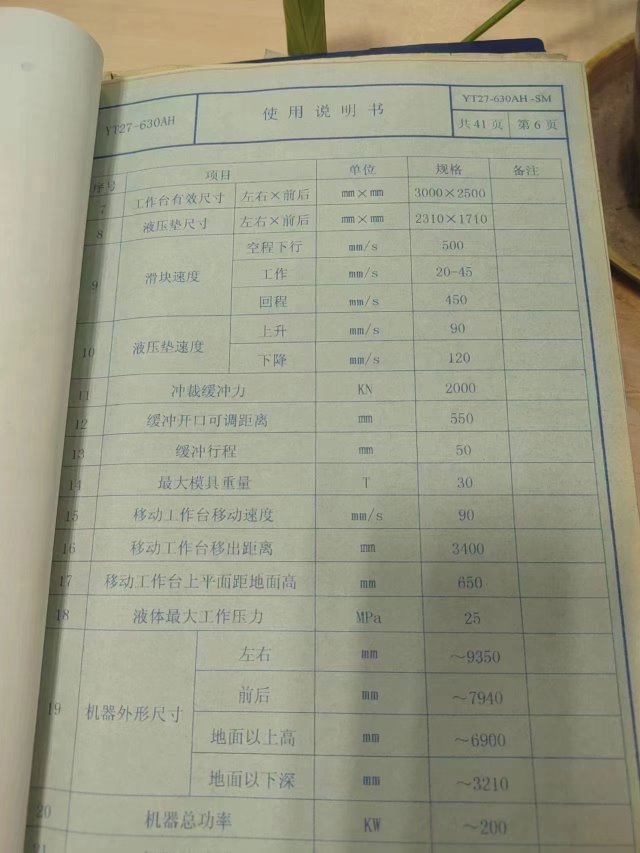 YT27-630AH 使用说明书 YT27-630AH-SM
共41页 第6页
序号 项目 单位 规格 备注
7 工作台有效尺寸 左右×前后 mm×mm 3000×2500
8 液压垫尺寸 左右×前后 mm×mm 2310×1710
9 滑块速度 空程下行 mm/s 500
工作 mm/s 20-45
回程 mm/s 450
10 液压垫速度 上升 mm/s 90
下降 mm/s 120
11 冲裁缓冲力 KN 2000
12 缓冲开口可调距离 mm 550
13 缓冲行程 mm 50
14 最大模具重量 T 30
15 移动工作台移动速度 mm/s 90
16 移动工作台移出距离 mm 3400
17 移动工作台上平面距地面高 mm 650
18 液体最大工作压力 MPa 25
19 机器外形尺寸 左右 mm ~9350
前后 mm ~7940
地面以上高 mm ~6900
地面以下深 mm ~3210
20 机器总功率 KW ~200
21